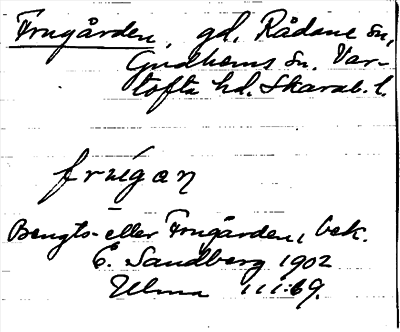 Frugården, gd, Rådane sn,
Gudhems sn. Var-
tofta hd. Skarab. l.
frúgan
Bengts- eller Frugården, bek.
E. Sandberg 1902
Ulma 111:69.